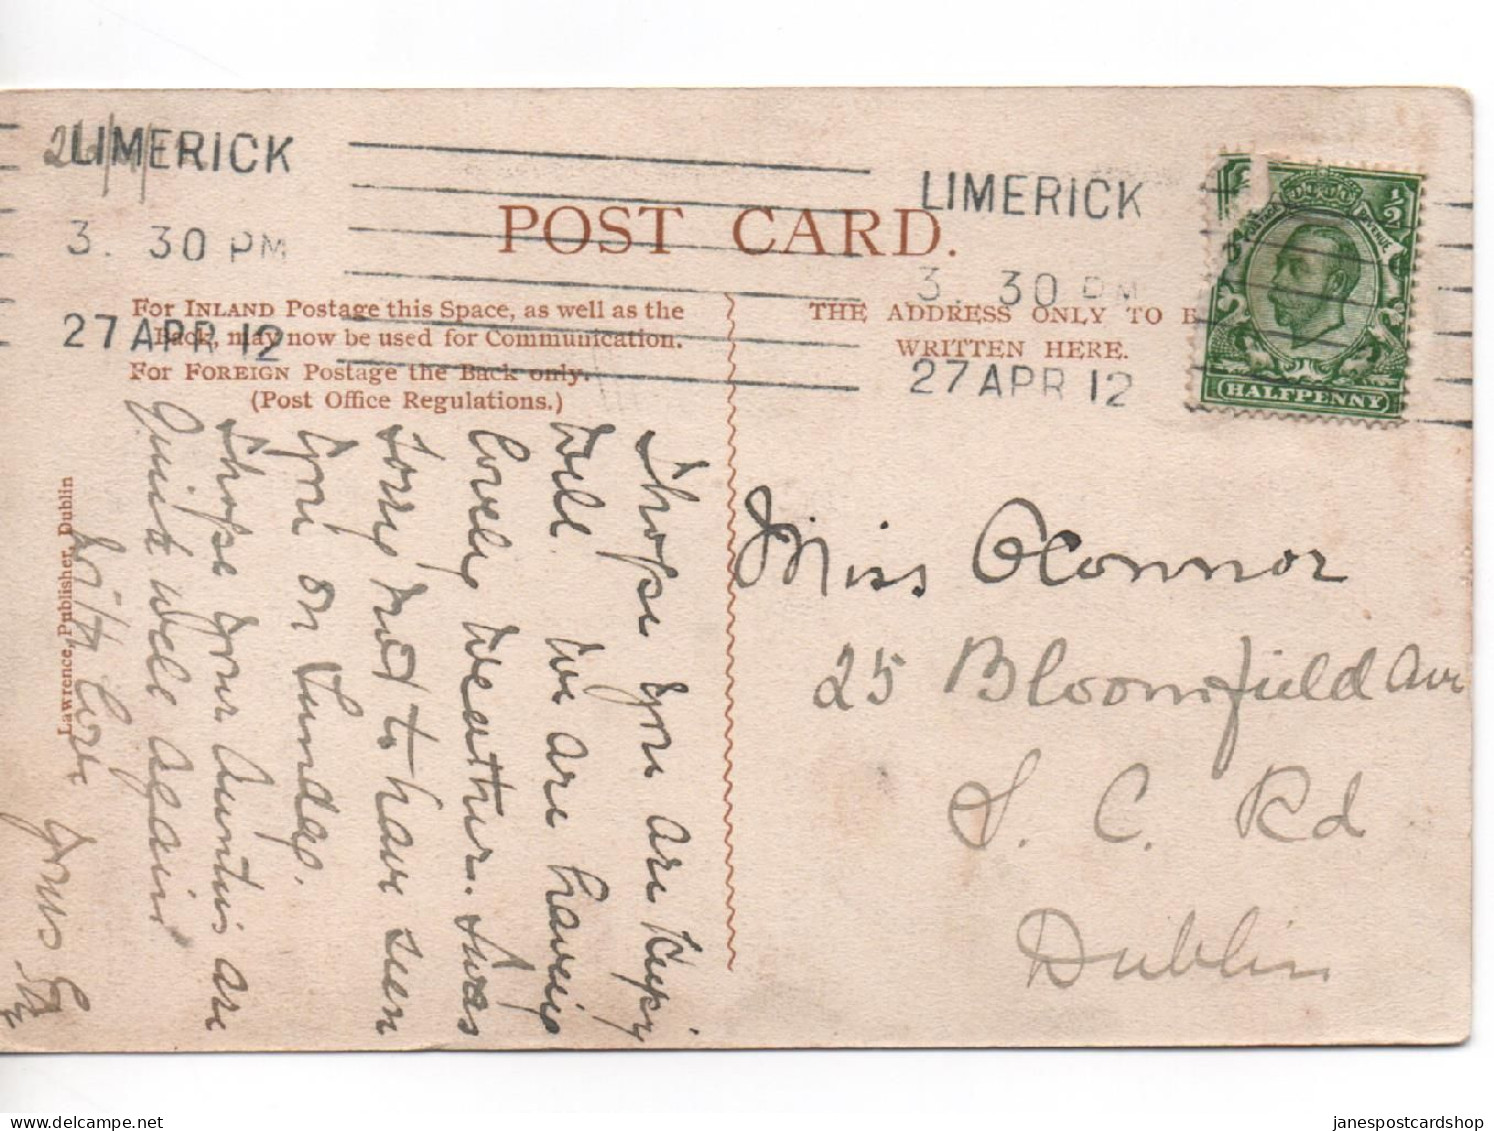 LIMERICK
3. 30 PM
27 APR 12
LIMERICK
3. 30 PM
27 APR 12
POST CARD.
For INLAND Postage this Space, as well as the
Back, may now be used for Communication.
For FOREIGN Postage the Back only.
(Post Office Regulations.)
THE ADDRESS ONLY TO B
WRITTEN HERE.
POSTAGE REVENUE
½
HALFPENNY
Lawrence, Publisher, Dublin
I hope you are
well. We are having
lovely weather. I was
sorry not to have seen
you on Sunday.
I hope your Aunties are
quite well again
with love
yours
Miss O'Connor
25 Bloomfield Ave
S. C. Rd
Dublin
janespostcardshop